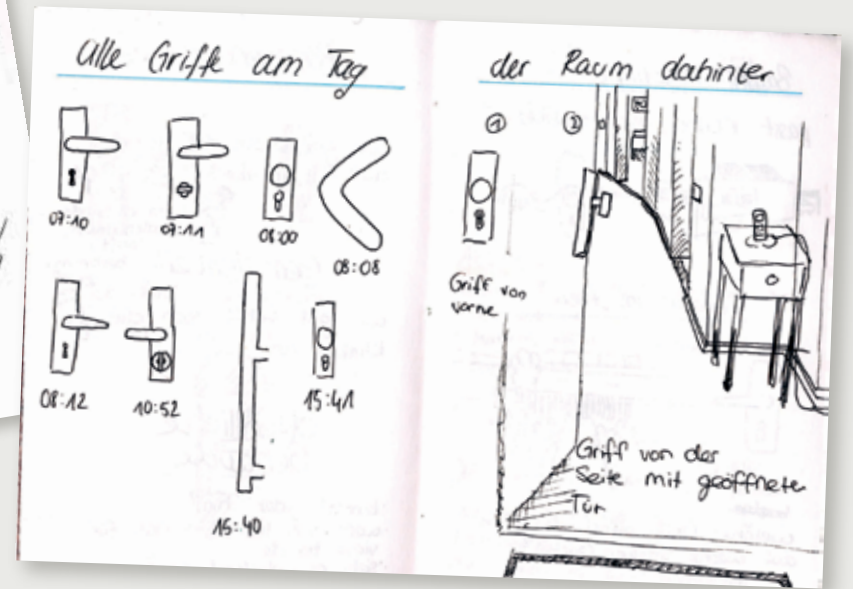 alle Griffe am Tag
07:10
07:11
08:00
08:08
08:12
10:52
15:40
15:41
der Raum dahinter
①
②
Griff von
vorne
Griff von der
Seite mit geöffneter
Tür